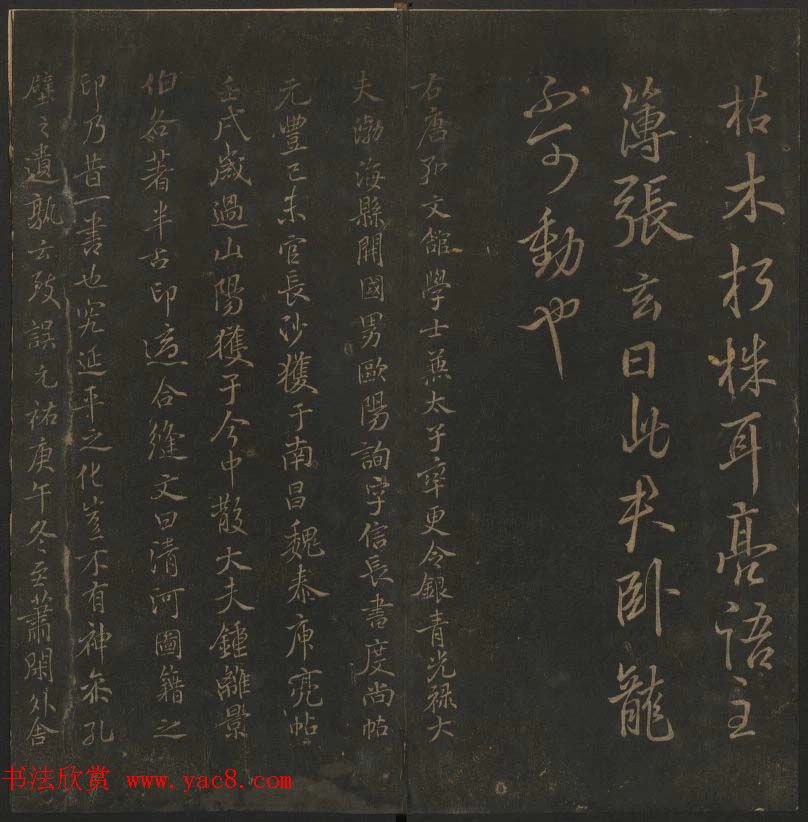 枯木朽株耳亮語主
簿張玄曰此夫卧龍
不可動也
右唐弘文館學士兼太子率更令銀青光禄大
夫渤海縣開國男歐陽詢字信長書度尚帖
元豐己未官長沙獲于南昌魏泰庾亮帖
壬戌歲過山陽獲于今中散大夫鍾離景
伯各著半古印適合縫文曰清河圖籍之
印乃昔一書也究延平之化豈不有神亦孔
壁之遺孰云殘誤元祐庚午冬至蕭閑外舍
书法欣赏 www.yac8.com